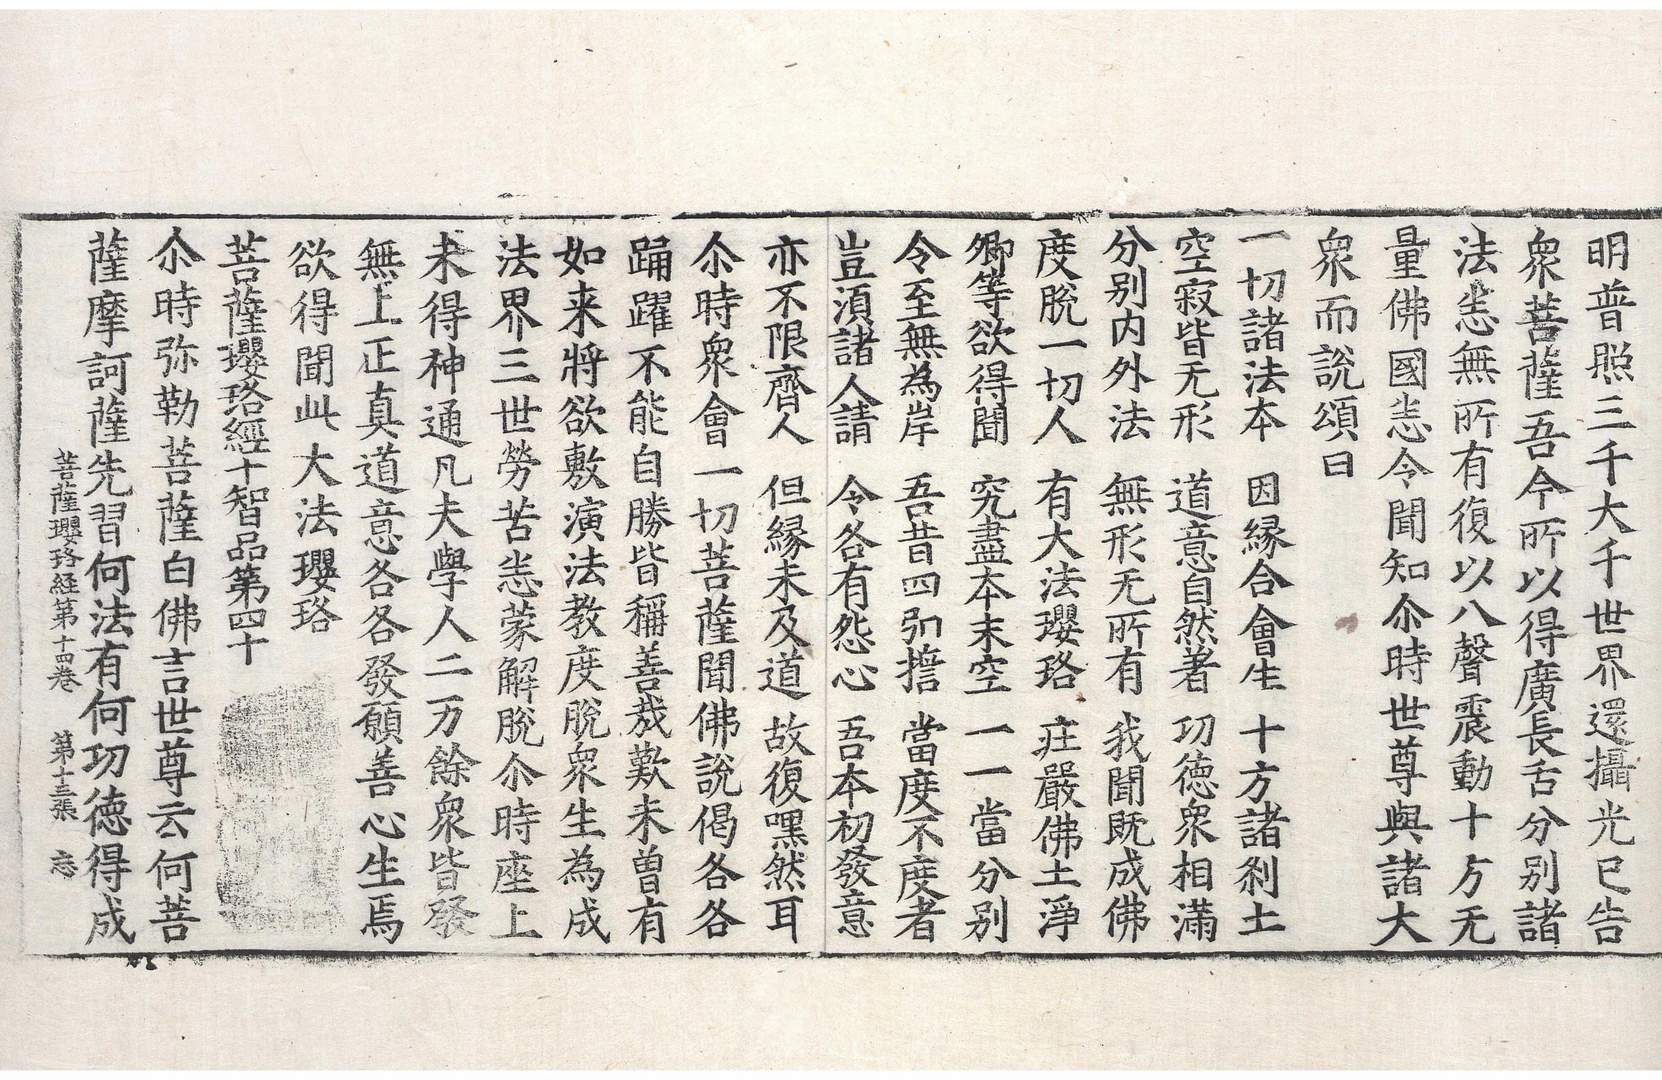 明普照三千大千世界還攝光已告
衆菩薩吾今所以得廣長舌分別諸
法悉無所有復以八聲震動十方无
量佛國悉令聞知尒時世尊與諸大
衆而說頌曰
一切諸法本　因緣合會生　十方諸刹土
空寂皆无形　道意自然著　功德衆相滿
分別内外法　無形无所有　我聞旣成佛
度脫一切人　有大法瓔珞　莊嚴佛土淨
卿等欲得聞　究盡本末空　一一當分別
令至無為岸　吾昔四弘擔　當度不度者
豈湏諸人請　令各有怨心　吾本初發意
亦不限齊人　但緣未及道　故復嘿然耳
尒時衆會一切菩薩聞佛說偈各各
踊躍不能自勝皆稱善哉歎未曾有
如来將欲敷演法教度脫衆生為成
法界三世勞苦悉蒙解脫尒時座上
未得神通凡夫學人二万餘衆皆發
無上正真道意各各發願善心生焉
欲得聞此大法瓔珞
菩薩瓔珞經十智品第四十
尒時弥勒菩薩白佛言世尊云何菩
薩摩訶薩先習何法有何功德得成
菩薩瓔珞経第十四卷　第十三張　忘